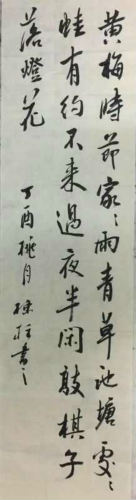 黄梅時節家〻雨青草池塘處〻
蛙有約不来過夜半闲敲棋子
落燈花
丁酉桃月 書之